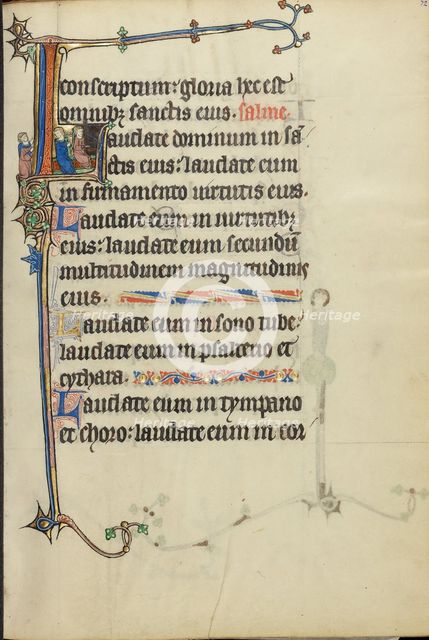 72
conscriptum: gloria hec est
omnibꝫ sanctis eius. salme.
Laudate dominum in sā
ctis eius: laudate eum
in firmamento uirtutis eius.
Laudate eum in uirtutibꝫ
eius: laudate eum secundū
multitudinem magnitudinis
eius.
Laudate eum in sono tube:
laudate eum in psalterio et
cythara.
Laudate eum in tympano
et choro: laudate eum in cor
Heritage
Heritage
Heritage
Heritage